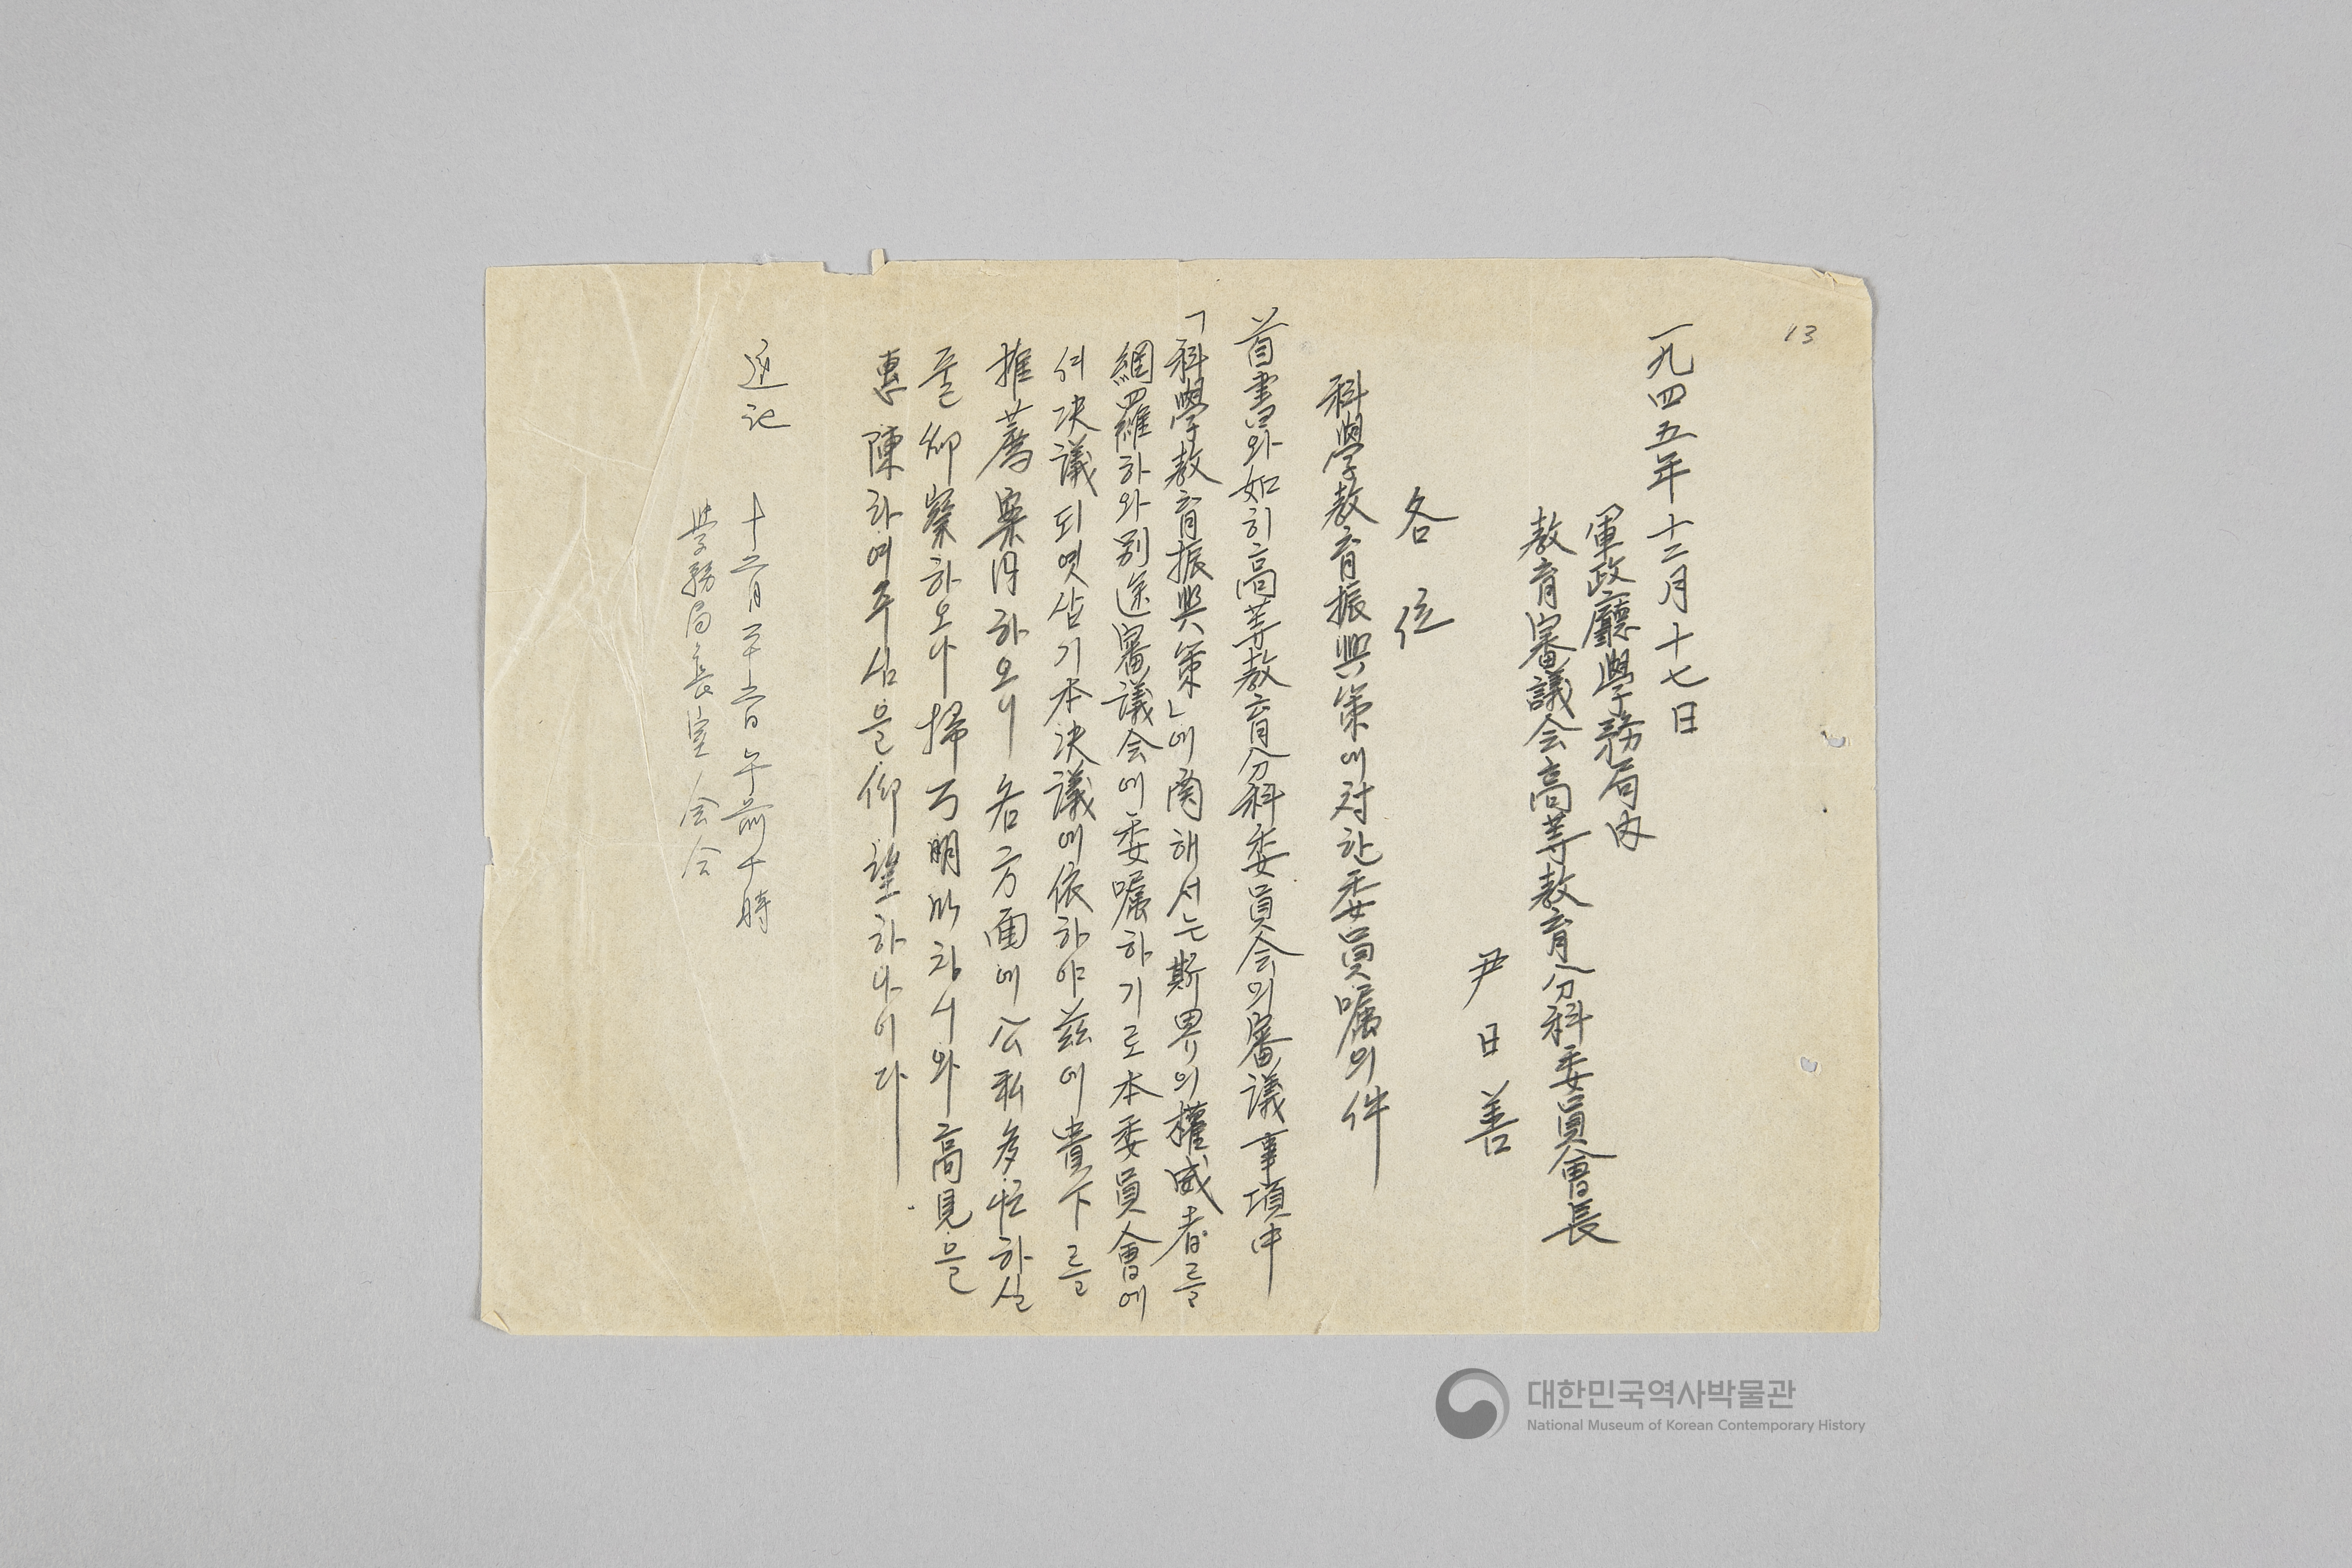 13
一九四五年十二月十七日
軍政廳學務局內
敎育審議会高等敎育分科委員會長
尹日善
各位
科學敎育振興策에対한委員囑의件
首書와如히高等敎育分科委員会의審議事項中
「科學敎育振興策」에関해서는斯界의權威者를
網羅하와別途審議会에委囑하기로本委員會에
서決議되엿삼기本決議에依하야玆에貴下를
推薦案円하오니各方面에公私多忙하실
줄仰察하오나掃万明 하시와高見을
惠陳하여주심을仰望하나이다
追記 十二月二十六日午前十時
学務局長室会合
대한민국역사박물관
National Museum of Korean Contemporary History